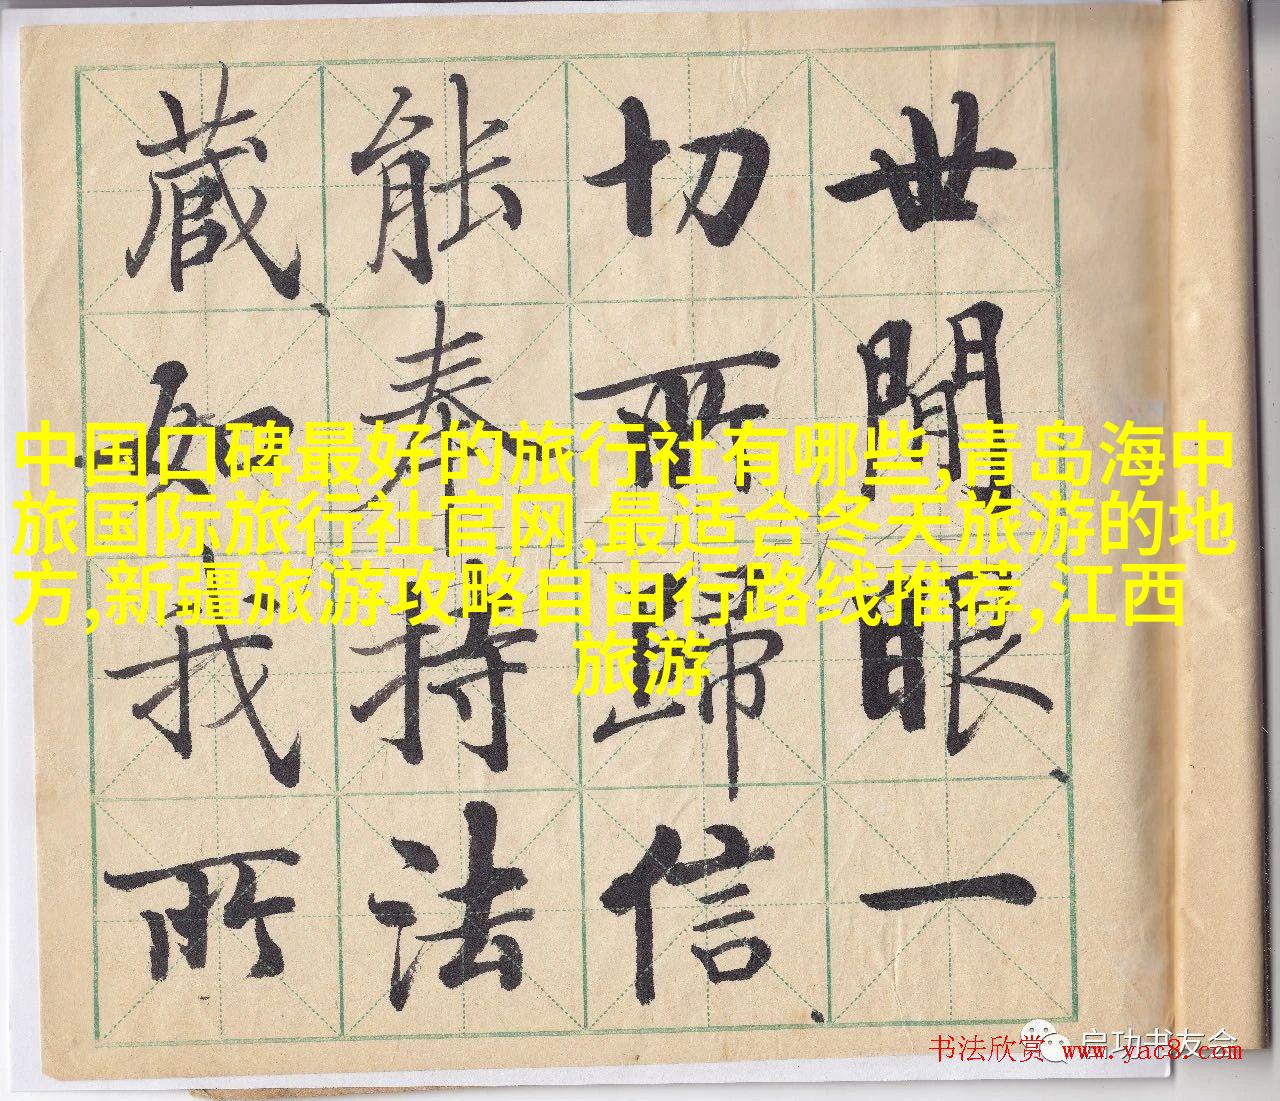 世間眼一
切所歸信
能奉持法
藏如我所
中国口碑最好的旅行社有哪些,青岛海中
旅国际旅行社官网,最适合冬天旅游的地
方,新疆旅游攻略自由行路线推荐,江西
旅游
启功书友会
书法欣赏 www.yac8.com